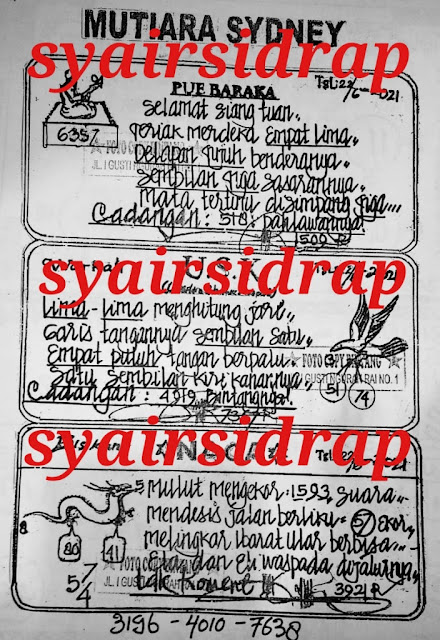 MUTIARA SYDNEY
syairsidrap
PUE BARAKA
6357
Selamat siang tuan..
Teriak merdeka Empat Lima..
Delapan tujuh benderanya..
Sembilan tiga sasarannya..
Mata tertuju disimpang tiga...
Cadangan: 5T8: pahlawannya!
1509 R
syairsidrap
U.S.K
Lima-Lima menghitung jari..
Garis tangannya sembilan satu..
Empat puluh tangan berpalu..
Satu sembilan kiri kanannya..
Cadangan: 4919 bintangnya!
51
74
FOTO COPY
JL. I GUSTI NGURAH RAI NO. 1
syairsidrap
NAGA
Mulut mengekor: 1593 suara..
mendesis jalan berliku- 57 ekor..
melingkar ibarat ular berbisa...
waspada dijalurnya..
8
5
80
41
5/4
392 R
3196 - 4010 - 7638